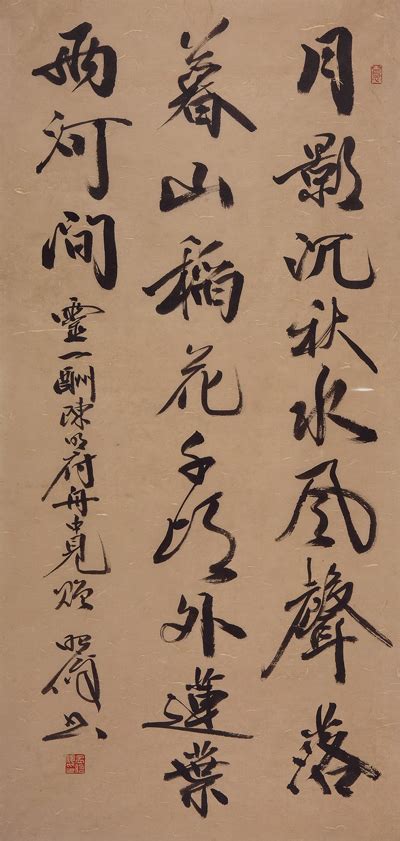 月影沉秋水風聲落
暮山稻花千頃外蓮葉
兩河間
靈一酬陳明府舟中見贈 書